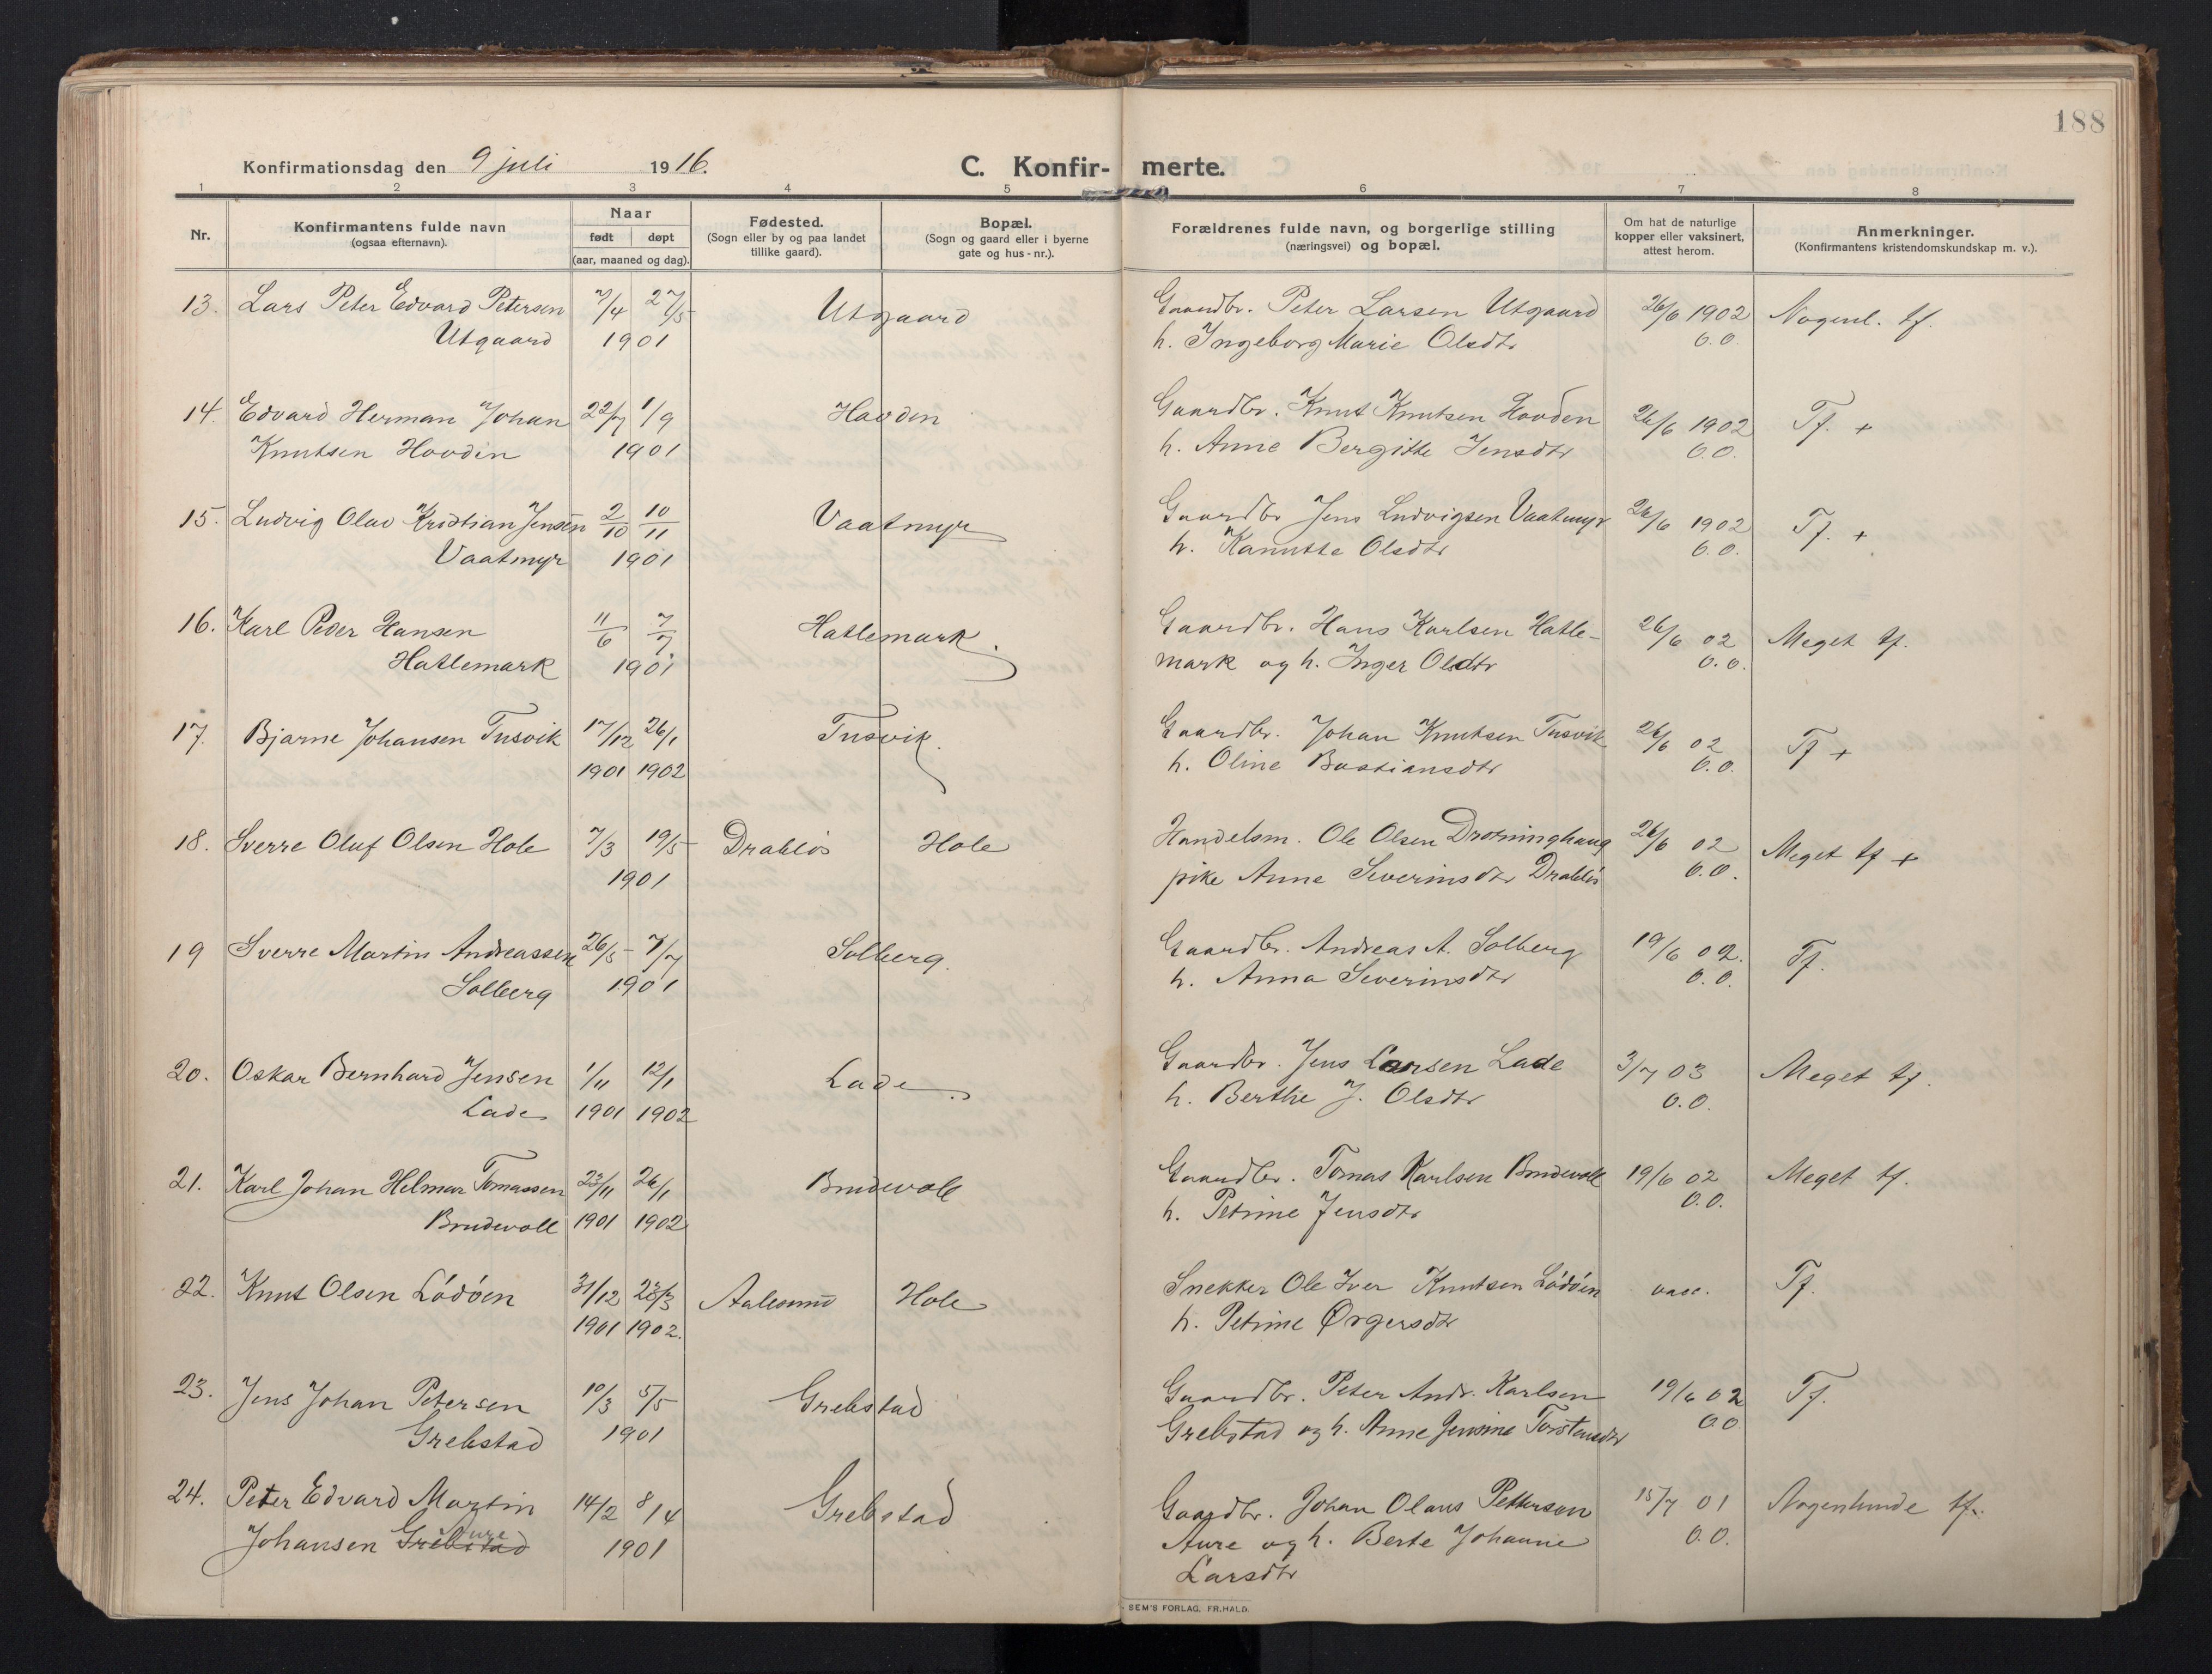 188
Konfirmationsdag den 9 juli 1916.
C. Konfir- merte.
1 2 3 4 5 6 7 8
Nr.
Konfirmantens fulde navn
(ogsaa efternavn).
Naar
født døpt
(aar, maaned og dag).
Fødested.
(Sogn eller by og paa landet
tillike gaard).
Bopæl.
(Sogn og gaard eller i byerne
gate og hus-nr.).
Forældrenes fulde navn, og borgerlige stilling
(næringsvei) og bopæl.
Om hat de naturlige
kopper eller vaksinert,
attest herom.
Anmerkninger.
(Konfirmantens kristendomskundskap m. v.).
13. Lars Peter Edvard Petersen 7/4 27/5 Utgaard Gaardbr. Peter Larsen Utgaard 26/6 1902 Nogenl. tf.
Utgaard 1901 h. Ingeborg Marie Olsdtr O.O.
14. Edvard Herman Johan 22/7 1/9 Hovden Gaardbr. Knut Knutsen Hovden 26/6 1902 Tf. +
Knutsen Hovden 1901 h. Anne Bergitte Jensdtr O.O.
15. Ludvig Olav Kristian Jensen 2/10 10/11 Vaatmyr Gaardbr Jens Ludvigsen Vaatmyr 26/6 1902 Tf. +
Vaatmyr 1901 h. Kanutte Olsdtr O.O.
16. Karl Peder Hansen 11/6 7/7 Hatlemark. Gaardbr. Hans Karlsen Hatle- 26/6 02 Meget tf.
Hatlemark 1901 mark og h. Inger Olsdtr O.O.
17. Bjarne Johansen Tusvik 17/12 26/1 Tusvik. Gaardbr. Johan Knutsen Tusvik 26/6 02 Tf +
1901 1902 h. Oline Bastiansdtr O.O.
18. Sverre Oluf Olsen Hole 7/3 19/5 Drabløs Hole Handelsm. Ole Olsen Droninghaug 26/6 02 Meget tf +
1901 pike Anne Severinsdtr Drabløs O.O.
19 Sverre Martin Andreassen 26/5 7/7 Solberg. Gaardbr. Andreas A. Solberg 19/6 02. Tf.
Solberg 1901 h. Anna Severinsdtr O.O.
20. Oskar Bernhard Jensen 1/11 12/1 Lade. Gaardbr. Jens Larsen Lade 3/7 03 Meget tf.
Lade 1901 1902 h. Berthe J. Olsdtr O.O.
21. Karl Johan Helmar Tomassen 23/11 26/1 Brudevoll Gaardbr. Tomas Karlsen Brudevoll 19/6 02 Meget tf.
Brudevoll 1901 1902 h. Petrine Jensdtr O.O.
22. Knut Olsen Lødøen 31/12 28/3 Aalesund Hole Snekker Ole Iver Knutsen Lødøen vacc. Tf.
1901 1902. h. Petrine Ørgersdtr
23. Jens Johan Petersen 10/3 5/5 Grebstad Gaardbr. Peter Andr. Karlsen 19/6 02 Tf.
Grebstad 1901 Grebstad og h. Anne Jensine Torstensdtr O.O
24. Peter Edvard Martin 14/2 8/4 Grebstad Gaardbr. Johan Olaus Pettersen 15/7 01 Nogenlunde tf.
Johansen Grebstad Aure 1901 Aure og h. Berte Johanne O.O.
Larsdtr
SEM'S FORLAG. FR. HALD.